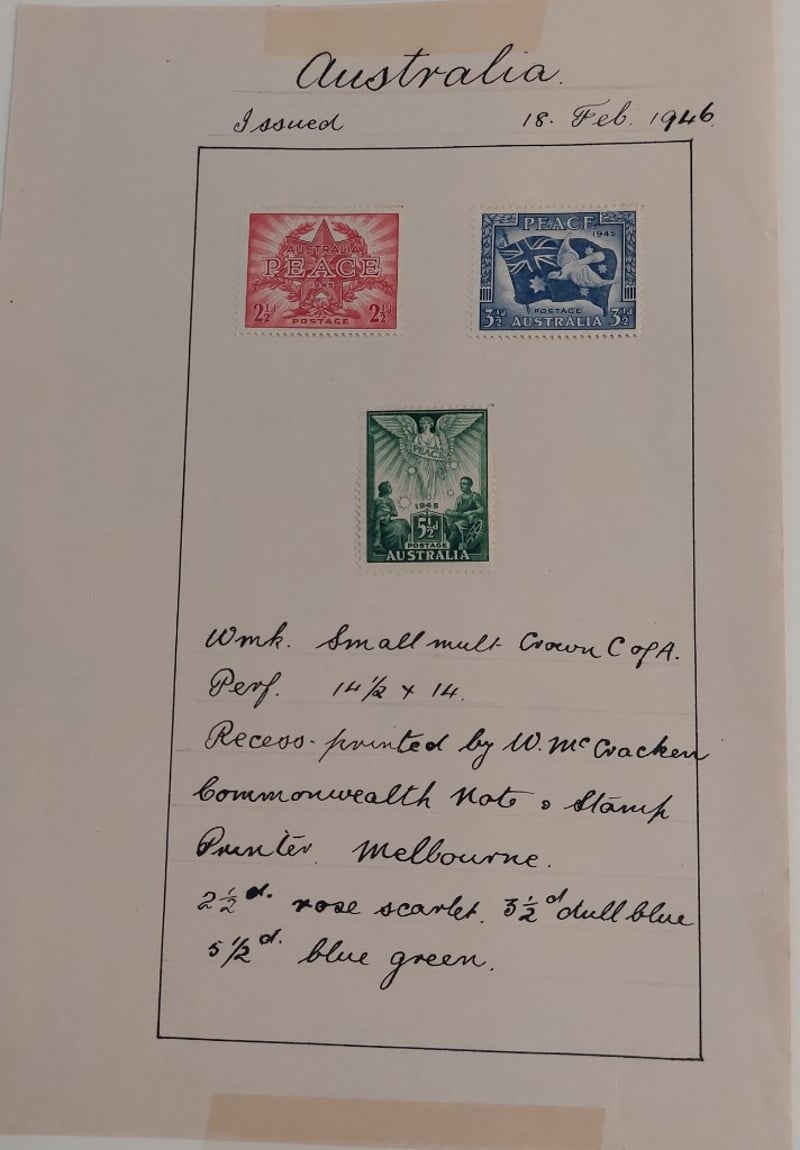 Australia.
Issued 18. Feb. 1946.
AUSTRALIA
PEACE
1945
2½d 2½d
POSTAGE
PEACE
1945
POSTAGE
3½d AUSTRALIA 3½d
PEACE
1945
5½d
POSTAGE
AUSTRALIA
Wmk. Small mult Crown C of A.
Perf. 14½ x 14.
Recess-printed by W. McCracken
Commonwealth Note & Stamp
Printer. Melbourne.
2½d. rose scarlet. 3½d dull blue
5½d. blue green.